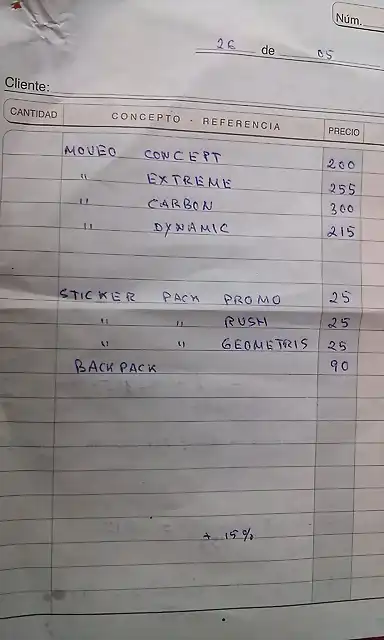 Núm.
26 de 05
Cliente:
CANTIDAD CONCEPTO - REFERENCIA PRECIO
MOVEO CONCEPT 200
" EXTREME 255
" CARBON 300
" DYNAMIC 215
STICKER PACK PROMO 25
" " RUSH 25
" " GEOMETRIS 25
BACKPACK 90
+ 15%